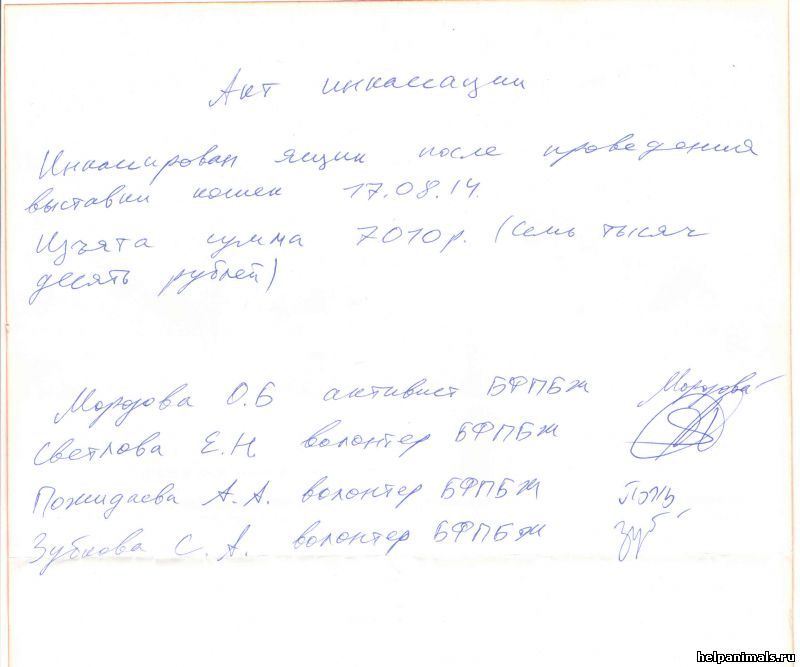 Акт инкассации
Инкассирован ящик после проведения
выставки кошек 17.08.14.
Изъята сумма 7010р. (семь тысяч
десять рублей)
Мордова О.Б активист БФПБЖ Мордова
Светлова Е.Н волонтер БФПБЖ
Пожидаева А.А. волонтер БФПБЖ Пож
Зубкова С.А. волонтер БФПБЖ Зуб
helpanimals.ru